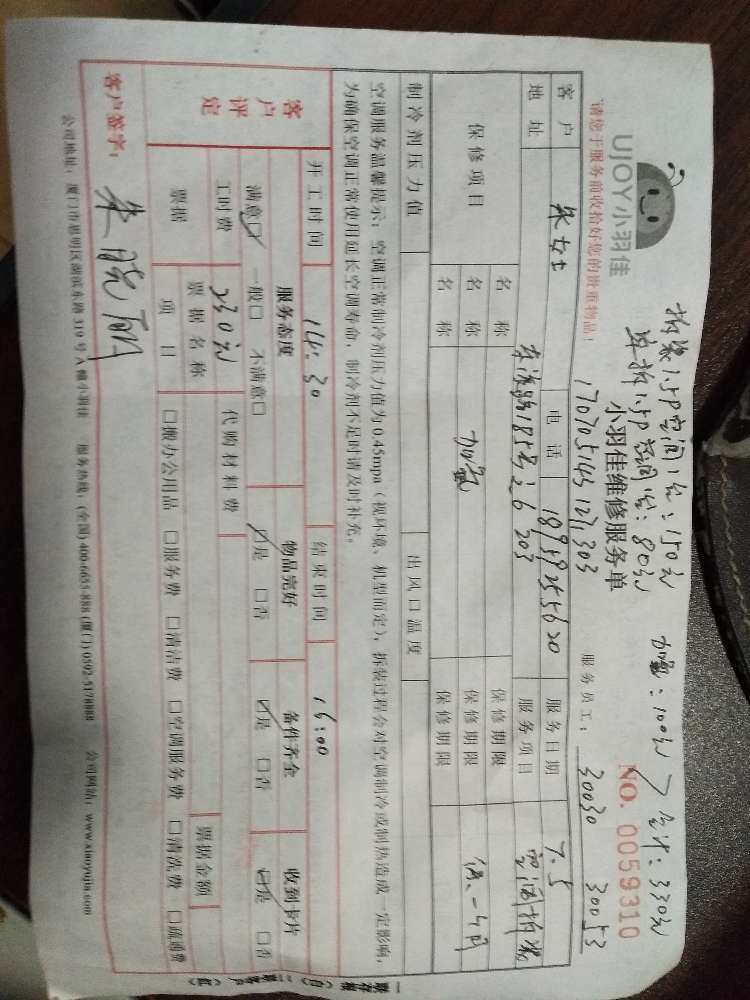 拆装1.5P空调1台:150元 加氟:100元
单拆1.5P空调1台:80元 合计:330元
UJOY小羽佳
小羽佳维修服务单
NO. 0059310
请您于服务前收拾好您的贵重物品!
1707051451271303
服务员工: 30030 30053
客户 朱女士 电话 18959255620 服务日期 7.5
地址 185号 203 服务项目 空调拆装
保修项目 名称 保修期限
名称 加氟 保修期限 保一个月
名称 保修期限
制冷剂压力值 出风口温度
空调服务温馨提示:空调正常制冷剂压力值为0.45mpa(视环境、机型而定),拆装过程会对空调制冷或制热造成一定影响,
为确保空调正常使用延长空调寿命,制冷剂不足时请及时补充。
客户评定
开工时间 14:30 结束时间 16:00
服务态度 物品完好 备件齐全 收到卡片
满意☑ 一般□ 不满意□ ☑是 □否 ☑是 □否 ☑是 □否
工时费 330元 代购材料费
票据 票据名称 票据金额
项目 □搬办公用品 □服务费 □清洁费 □空调服务费 □清洗费 □疏通费
客户签字: 朱晓丽
公司地址:厦门市思明区湖滨东路319号A幢小羽佳 服务热线:(全国)400-6655-888 (厦门)0592-5178888 公司网站:www.xiaoyujia.com